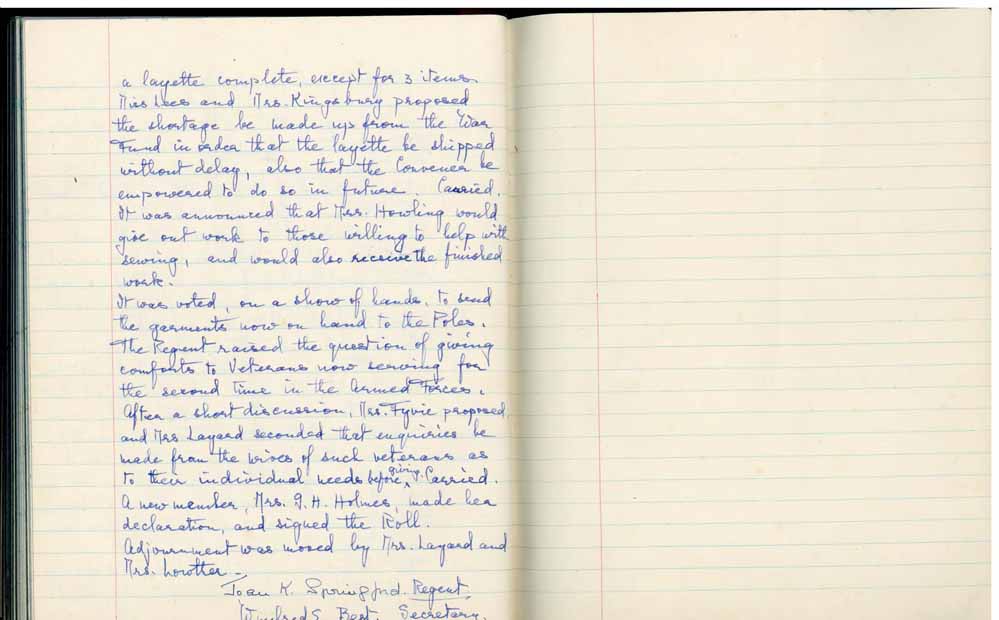 a layette complete, except for 3 items.
Miss Lees and Mrs. Kingsbury proposed
the shortage be made up from the War
Fund in order that the layette be shipped
without delay, also that the Convener be
empowered to do so in future. Carried.
It was announced that Mrs. Howling would
give out work to those willing to help with
sewing, and would also receive the finished
work.
It was voted, on a show of hands, to send
the garments now on hand to the Poles.
The Regent raised the question of giving
comforts to Veterans now serving for
the second time in the Armed Forces.
After a short discussion, Mrs. Fyvie proposed
and Mrs Layard seconded that enquiries be
made from the wives of such veterans as
to their individual needs before giving. Carried.
A new member, Mrs. G. H. Holmes, made her
declaration, and signed the Roll.
Adjournment was moved by Mrs. Layard and
Mrs. Lowther.
Joan K. Springford. Regent.
Winifred S. Best. Secretary.